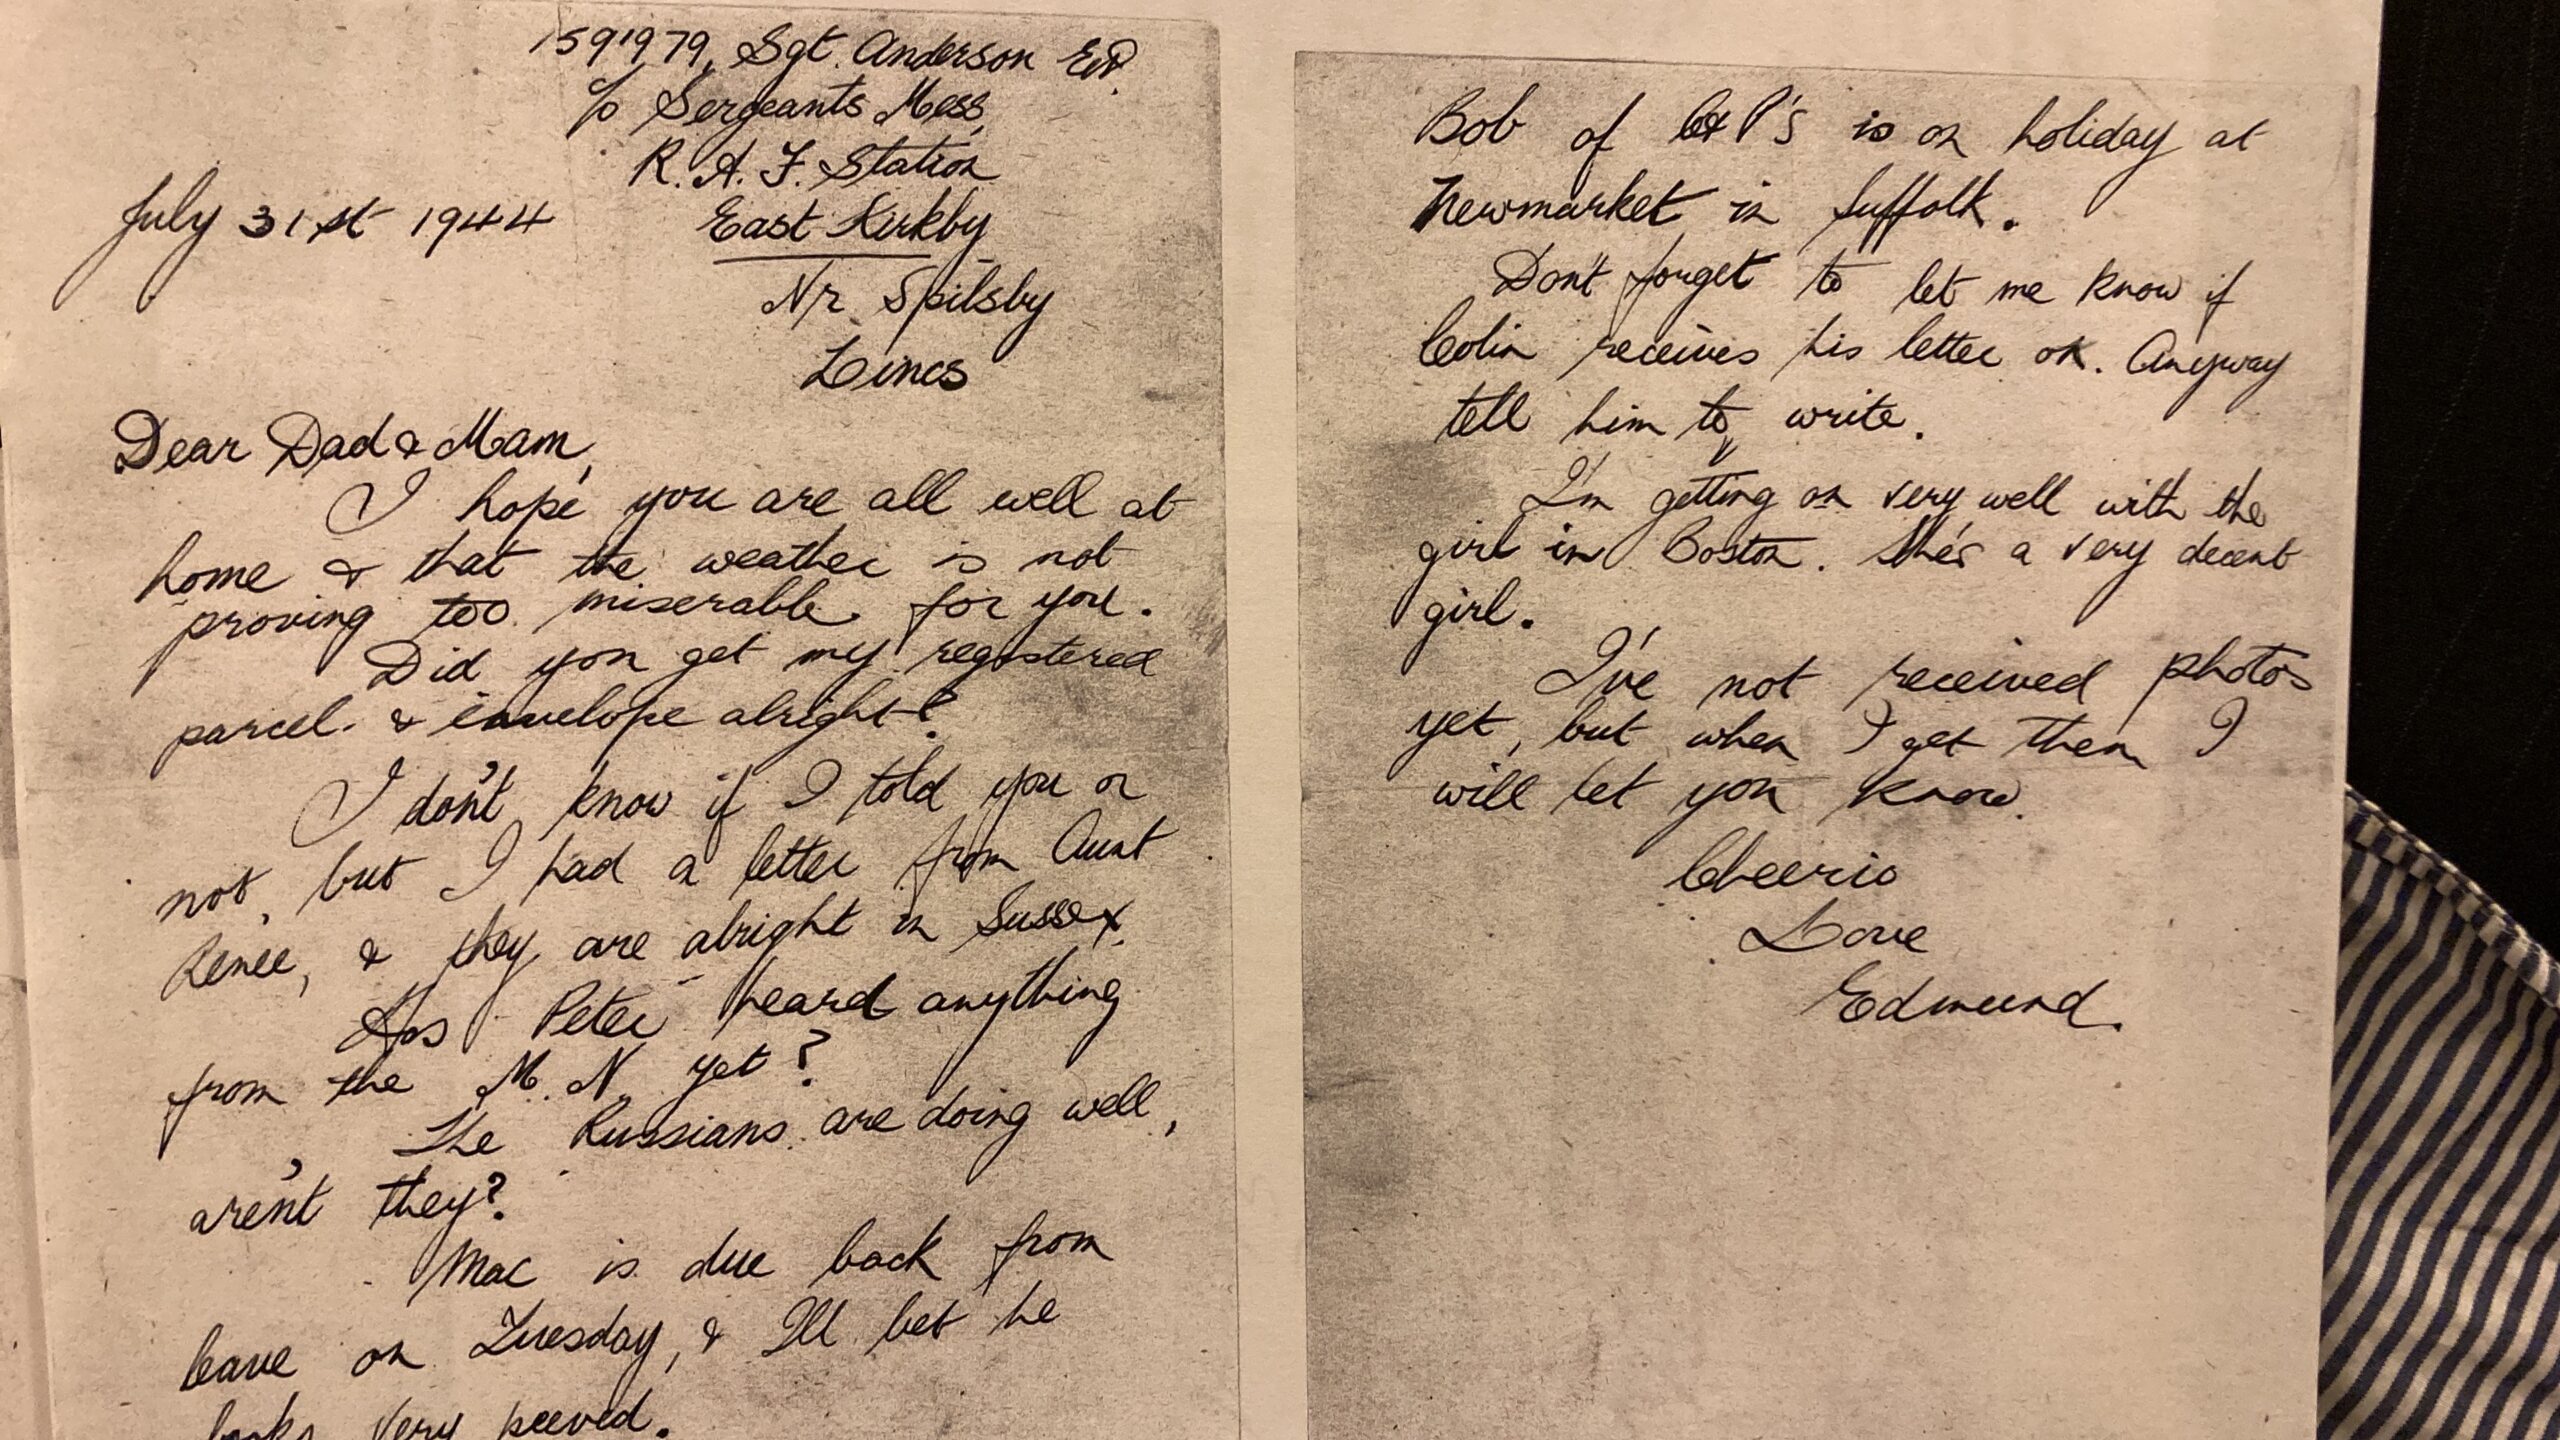 1591979, Sgt. Anderson
c/o Sergeants Mess,
R.A.F. Station
East Kirkby
Nr Spilsby
Lincs
July 31st 1944
Dear Dad & Mam,
I hope you are all well at
home & that the weather is not
proving too miserable for you.
Did you get my registered
parcel & envelope alright?
I don't know if I told you or
not, but I had a letter from Aunt
Renee, & they are alright in Sussex.
Has Peter heard anything
from the M.N. yet?
The Russians are doing well,
aren't they?
Mac is due back from
leave on Tuesday, & I'll bet he
looks very peeved.
Bob of C&P's is on holiday at
Newmarket in Suffolk.
Don't forget to let me know if
Colin receives his letter ok. Anyway
tell him to write.
I'm getting on very well with the
girl in Boston. She's a very decent
girl.
I've not received photos
yet, but when I get them I
will let you know.
Cheerio
Love
Edmund.